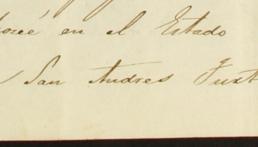 en el Estado
San Andres Tuxt